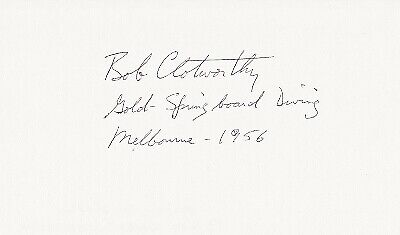 Bob Clotworthy
Gold - Springboard Diving
Melbourne - 1956